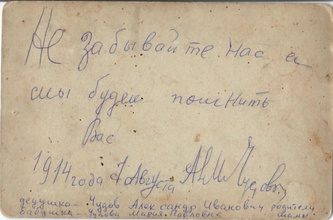 Не забывайте нас а
мы будем помнить
Вас
1914 года 1 Август
дедушка - Чудов Александр Иванович родители
бабушка - Чудова Мария Павловна мамы